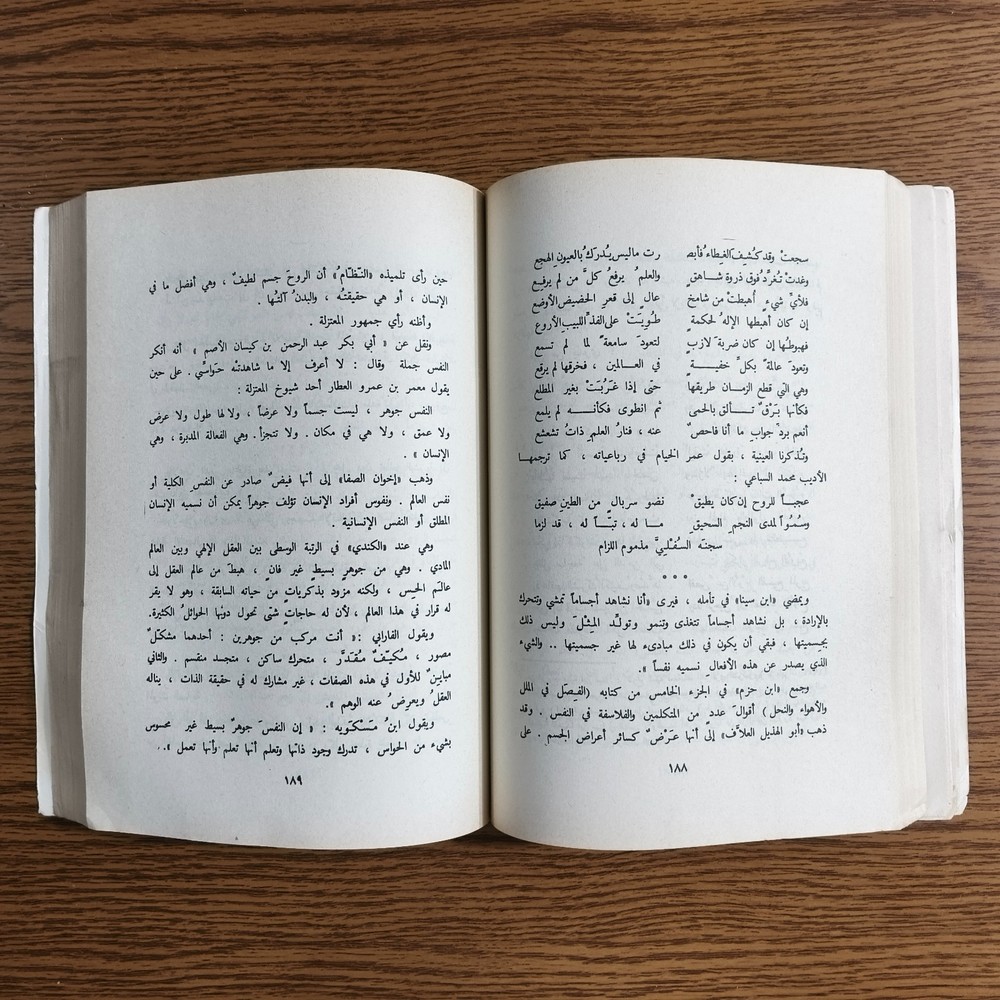 سجعتْ وقد كُشِفَ الغِطاءُ فأبصـ رت ماليس يُدرَكُ بالعيونِ الهجع
وغدتْ تُغرِّدُ فوق ذروة شاهقٍ والعلمُ يرفعُ كلَّ من لم يرفع
فلأيِّ شيءٍ أُهبطتْ من شامخ عالٍ إلى قعرِ الحضيضِ الأوضع
إن كان أهبطها الإلهُ لحكمةٍ طُويَتْ على الفذِّ اللبيبِ الأروع
فهبوطُها إن كان ضربةَ لازبٍ لتعودَ سامعةً لما لم تسمع
وتعودَ عالمةً بكلِّ خفيــةٍ في العـالمين ، فخرقها لم يرقع
وهي التي قطع الزمـان طريقها حتى إذا غَرُبَتْ بغير المطلع
فكأنها بَرْقٌ تــألق بالحمى ثم انطوى فكأنــه لم يلمع
أنعم بردِّ جوابِ ما أنا فاحصٌ عنه ، فنارُ العلمِ ذاتُ تشعشع
وتُذكرنا العينية ، بقول عمر الخيام في رباعياته ، كما ترجمها
الأديب محمد السباعي :
عجبـاً للروح إن كان يطيقْ نضو سربال من الطينِ صفيق
وسُمُواً لمدى النجم السحيقْ ما له ، تبّـاً له ، قد لزما
سجنَه السُفليَّ مذموم اللزام
• • •
ويمضي «ابن سينا» في تأمله ، فيرى «أنا نشاهد أجساماً تمشي وتتحرك
بالإرادة ، بل نشاهد أجساماً تتغذى وتنمو وتولِّد المِثْلَ وليس ذلك
بجسميتها ، فبقي أن يكون في ذلك مبادىء لها غير جسميتها .. والشيء
الذي يصدر عن هذه الأفعالِ نسميه نفساً ».
وجمع «ابن حزم» في الجزء الخامس من كتابه (الفيصَل في الملل
والأهواء والنحل) أقوالَ عددٍ من المتكلمين والفلاسفة في النفس . وقد
ذهب «أبو الهذيل العلاّف» إلى أنها عَرَضٌ كسائر أعراض الجسم . على
١٨٨
حين رأى تلميذه «النَظّامُ» أن الروحَ جسم لطيفٌ ، وهي أفضل ما في
الإنسان ، أو هي حقيقتُه ، والبدنُ آلتُها .
وأظنه رأي جمهور المعتزلة .
ونقل عن « أبي بكر عبد الرحمن بن كيسان الأصم » أنه أنكر
النفس جملة وقال : لا أعرف إلا ما شاهدتْه حَواسِّي . على حين
يقول معمر بن عمرو العطار أحد شيوخ المعتزلة :
النفس جوهر ، ليست جسماً ولا عرضاً ، ولا لها طول ولا عرض
ولا عمق ، ولا هي في مكان . ولا تتجزأ . وهي الفعالة المدبرة ، وهي
الإنسان » .
وذهب «إخوان الصفا» إلى أنها فيضٌ صادر عن النفسِ الكلية أو
نفس العالم . ونفوس أفراد الإنسان تؤلف جوهراً يمكن أن نسميه الإنسان
المطلق أو النفس الإنسانية .
وهي عند «الكندي» في الرتبة الوسطى بين العقل الإلهي وبين العالم
المادي . وهي من جوهرٍ بسيطٍ غير فانٍ ، هبطَ من عالم العقل إلى
عالَم الحِس ، ولكنه مزود بذكرياتٍ من حياته السابقة ، وهو لا يقر
له قرار في هذا العالم ، لأن له حاجاتٍ شتّى تحول دونها الحوائلُ الكثيرة.
ويقول الفارابي :« أنت مركب من جوهرين : أحدهما مشكَّلٌ
مصور ، مُكيّفٌ مُقدَّر ، متحرك ساكن ، متجسد منقسم . والثاني
مباينٌ للأول في هذه الصفات ، غير مشارك له في حقيقة الذات ، يناله
العقلُ ويعرِضُ عنه الوهم ».
ويقول ابنُ مَسْكَوَيه : « إن النفسَ جوهرٌ بسيط غير محسوس
بشيء من الحواس ، تدرك وجود ذاتِها وتعلم أنها تعلم وأنها تعمل ».
١٨٩